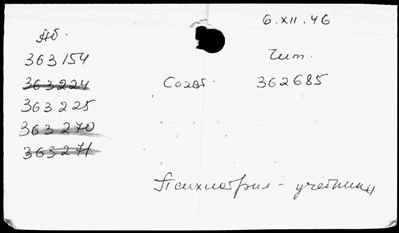 6.XII.46
Аб.
Чит.
363154
363224
Согл. 362685
363225
363270
363271
Психиатрия - учебники